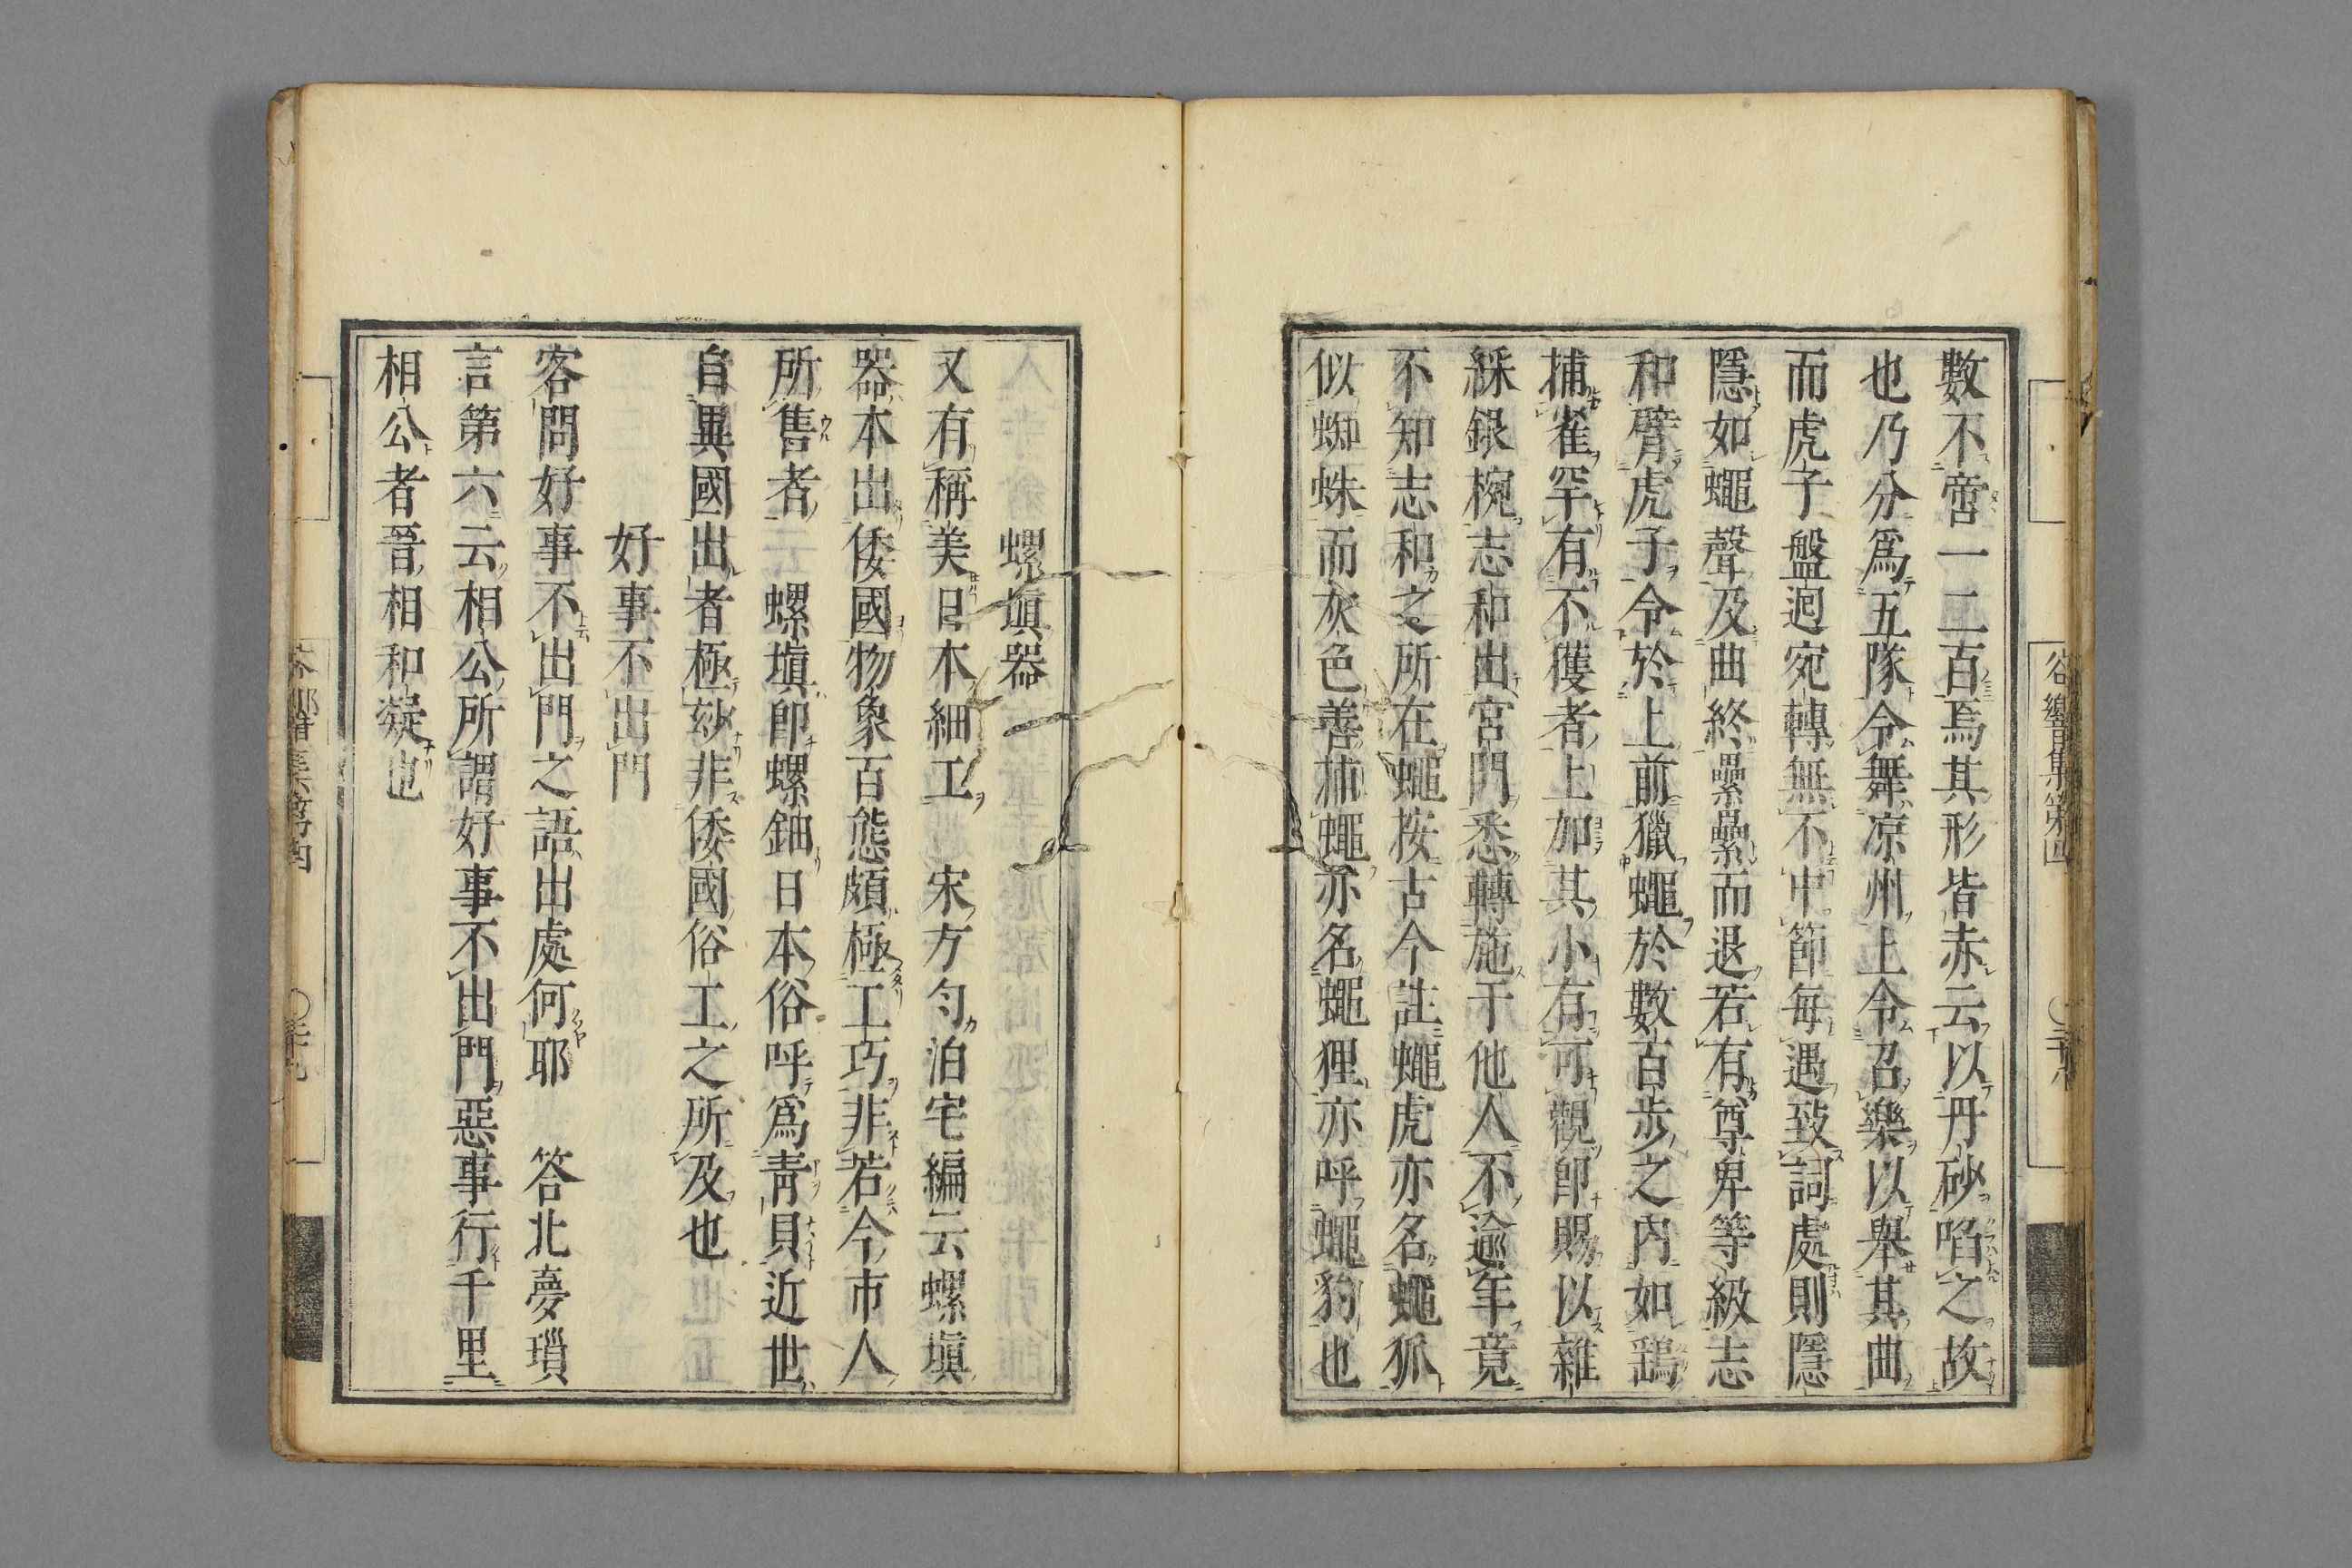 數不啻一二百焉其形皆赤云以丹砂啗之故
也乃分爲五隊令舞凉州上令召樂以舉其曲
而虎子盤迴宛轉無不中節每遇致詞處則隱
隱如蠅聲及曲終纍纍而退若有尊卑等級志
和臂虎子令於上前獵蠅於數百步之內如鷂
捕雀罕有不獲者上加其小有可觀即賜以雜
綵銀椀志和出宮門悉轉施于他人不逾年竟
不知志和之所在蠅按古今註蠅虎亦名蠅狐
似蜘蛛而灰色善捕蠅亦名蠅狸亦呼蠅豹也
谷響集第四
螺塡器
又有稱美日本細工 宋方勺泊宅編云螺塡
器本出倭國物象百態頗極工巧非若今市人
所售者 螺塡卽螺鈿日本俗呼爲靑貝近世
自異國出者極玅非倭國俗工之所及也
好事不出門
客問好事不出門之語出處何耶 答北夢瑣
言第六云相公所謂好事不出門惡事行千里
相公者晉相和凝也